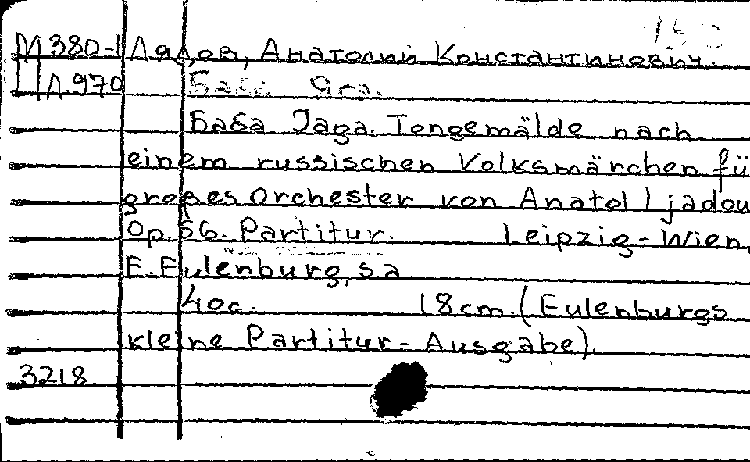 М380-1 Лядов, Анатолий Константинович.
Л970 Баба Яга.
Баба Jaga. Tongemälde nach
einem russischen Volksmärchen fü
großes Orchester von Anatol Ljadou
Op. 56. Partitur. Leipzig-Wien,
E. Eulenburg, s a
40c. 18cm. (Eulenburgs
kleine Partitur-Ausgabe).
3218